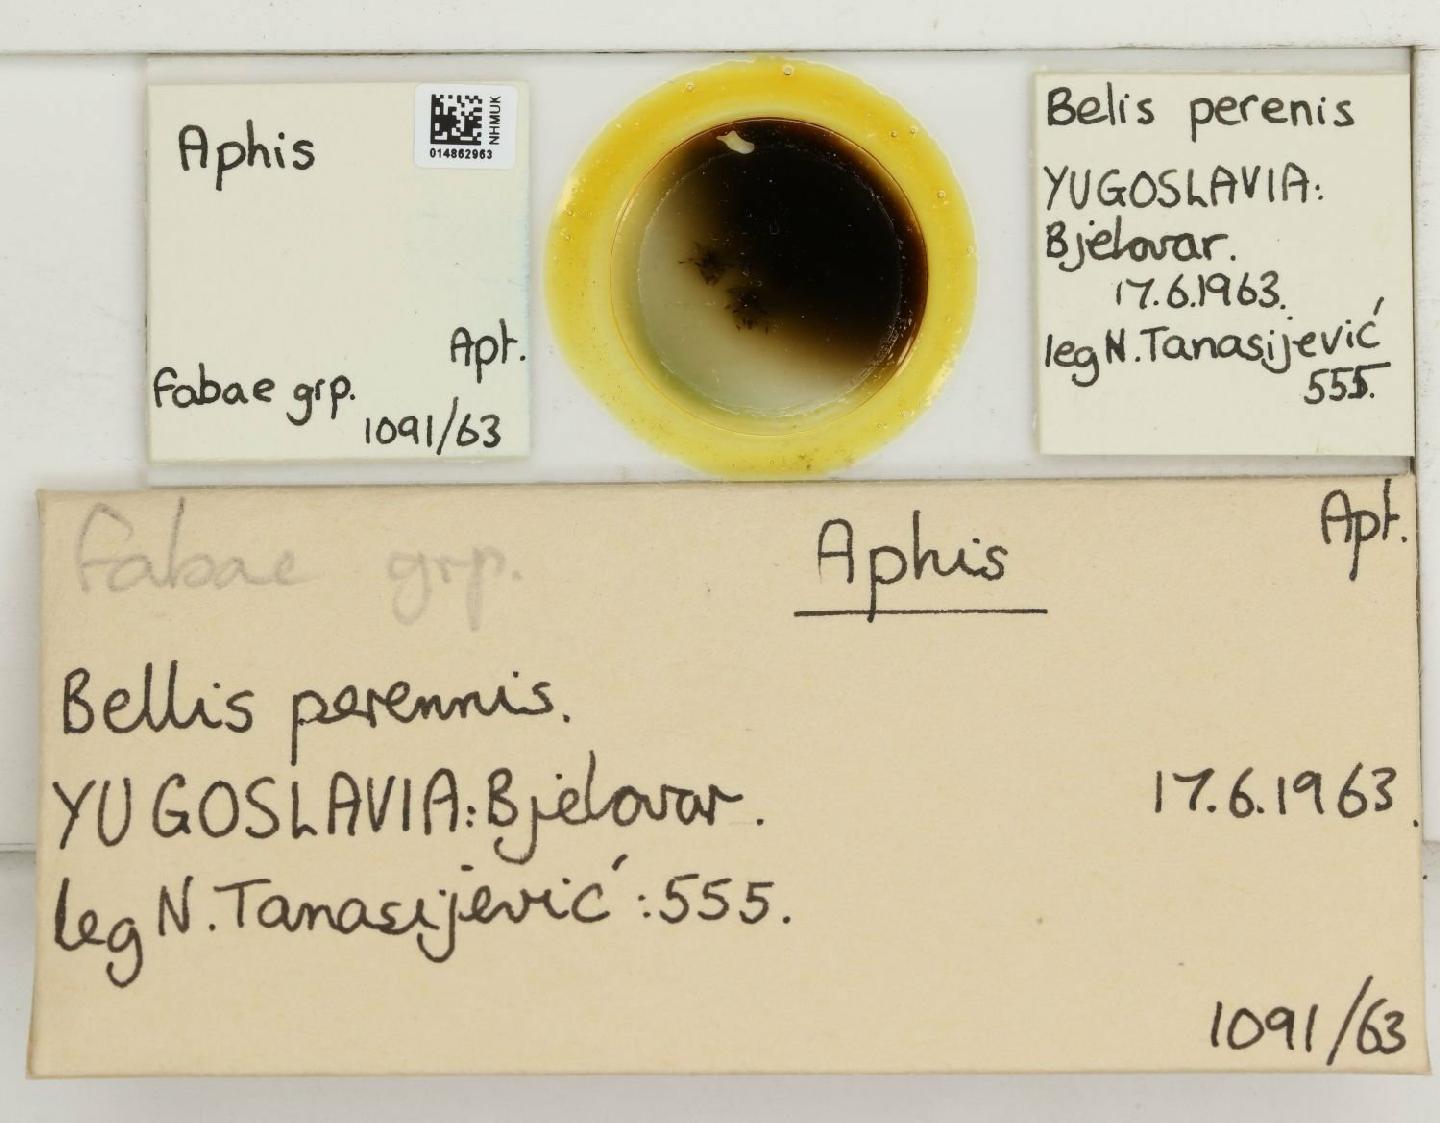 Aphis
NHMUK
014862963
Apt.
fabae grp.
1091/63
Belis perenis
YUGOSLAVIA:
Bjelovar.
17.6.1963.
leg N. Tanasijević
555.
fabae grp.
Aphis
Apt.
Bellis perennis.
YUGOSLAVIA: Bjelovar.
17.6.1963.
leg N. Tanasijević: 555.
1091/63